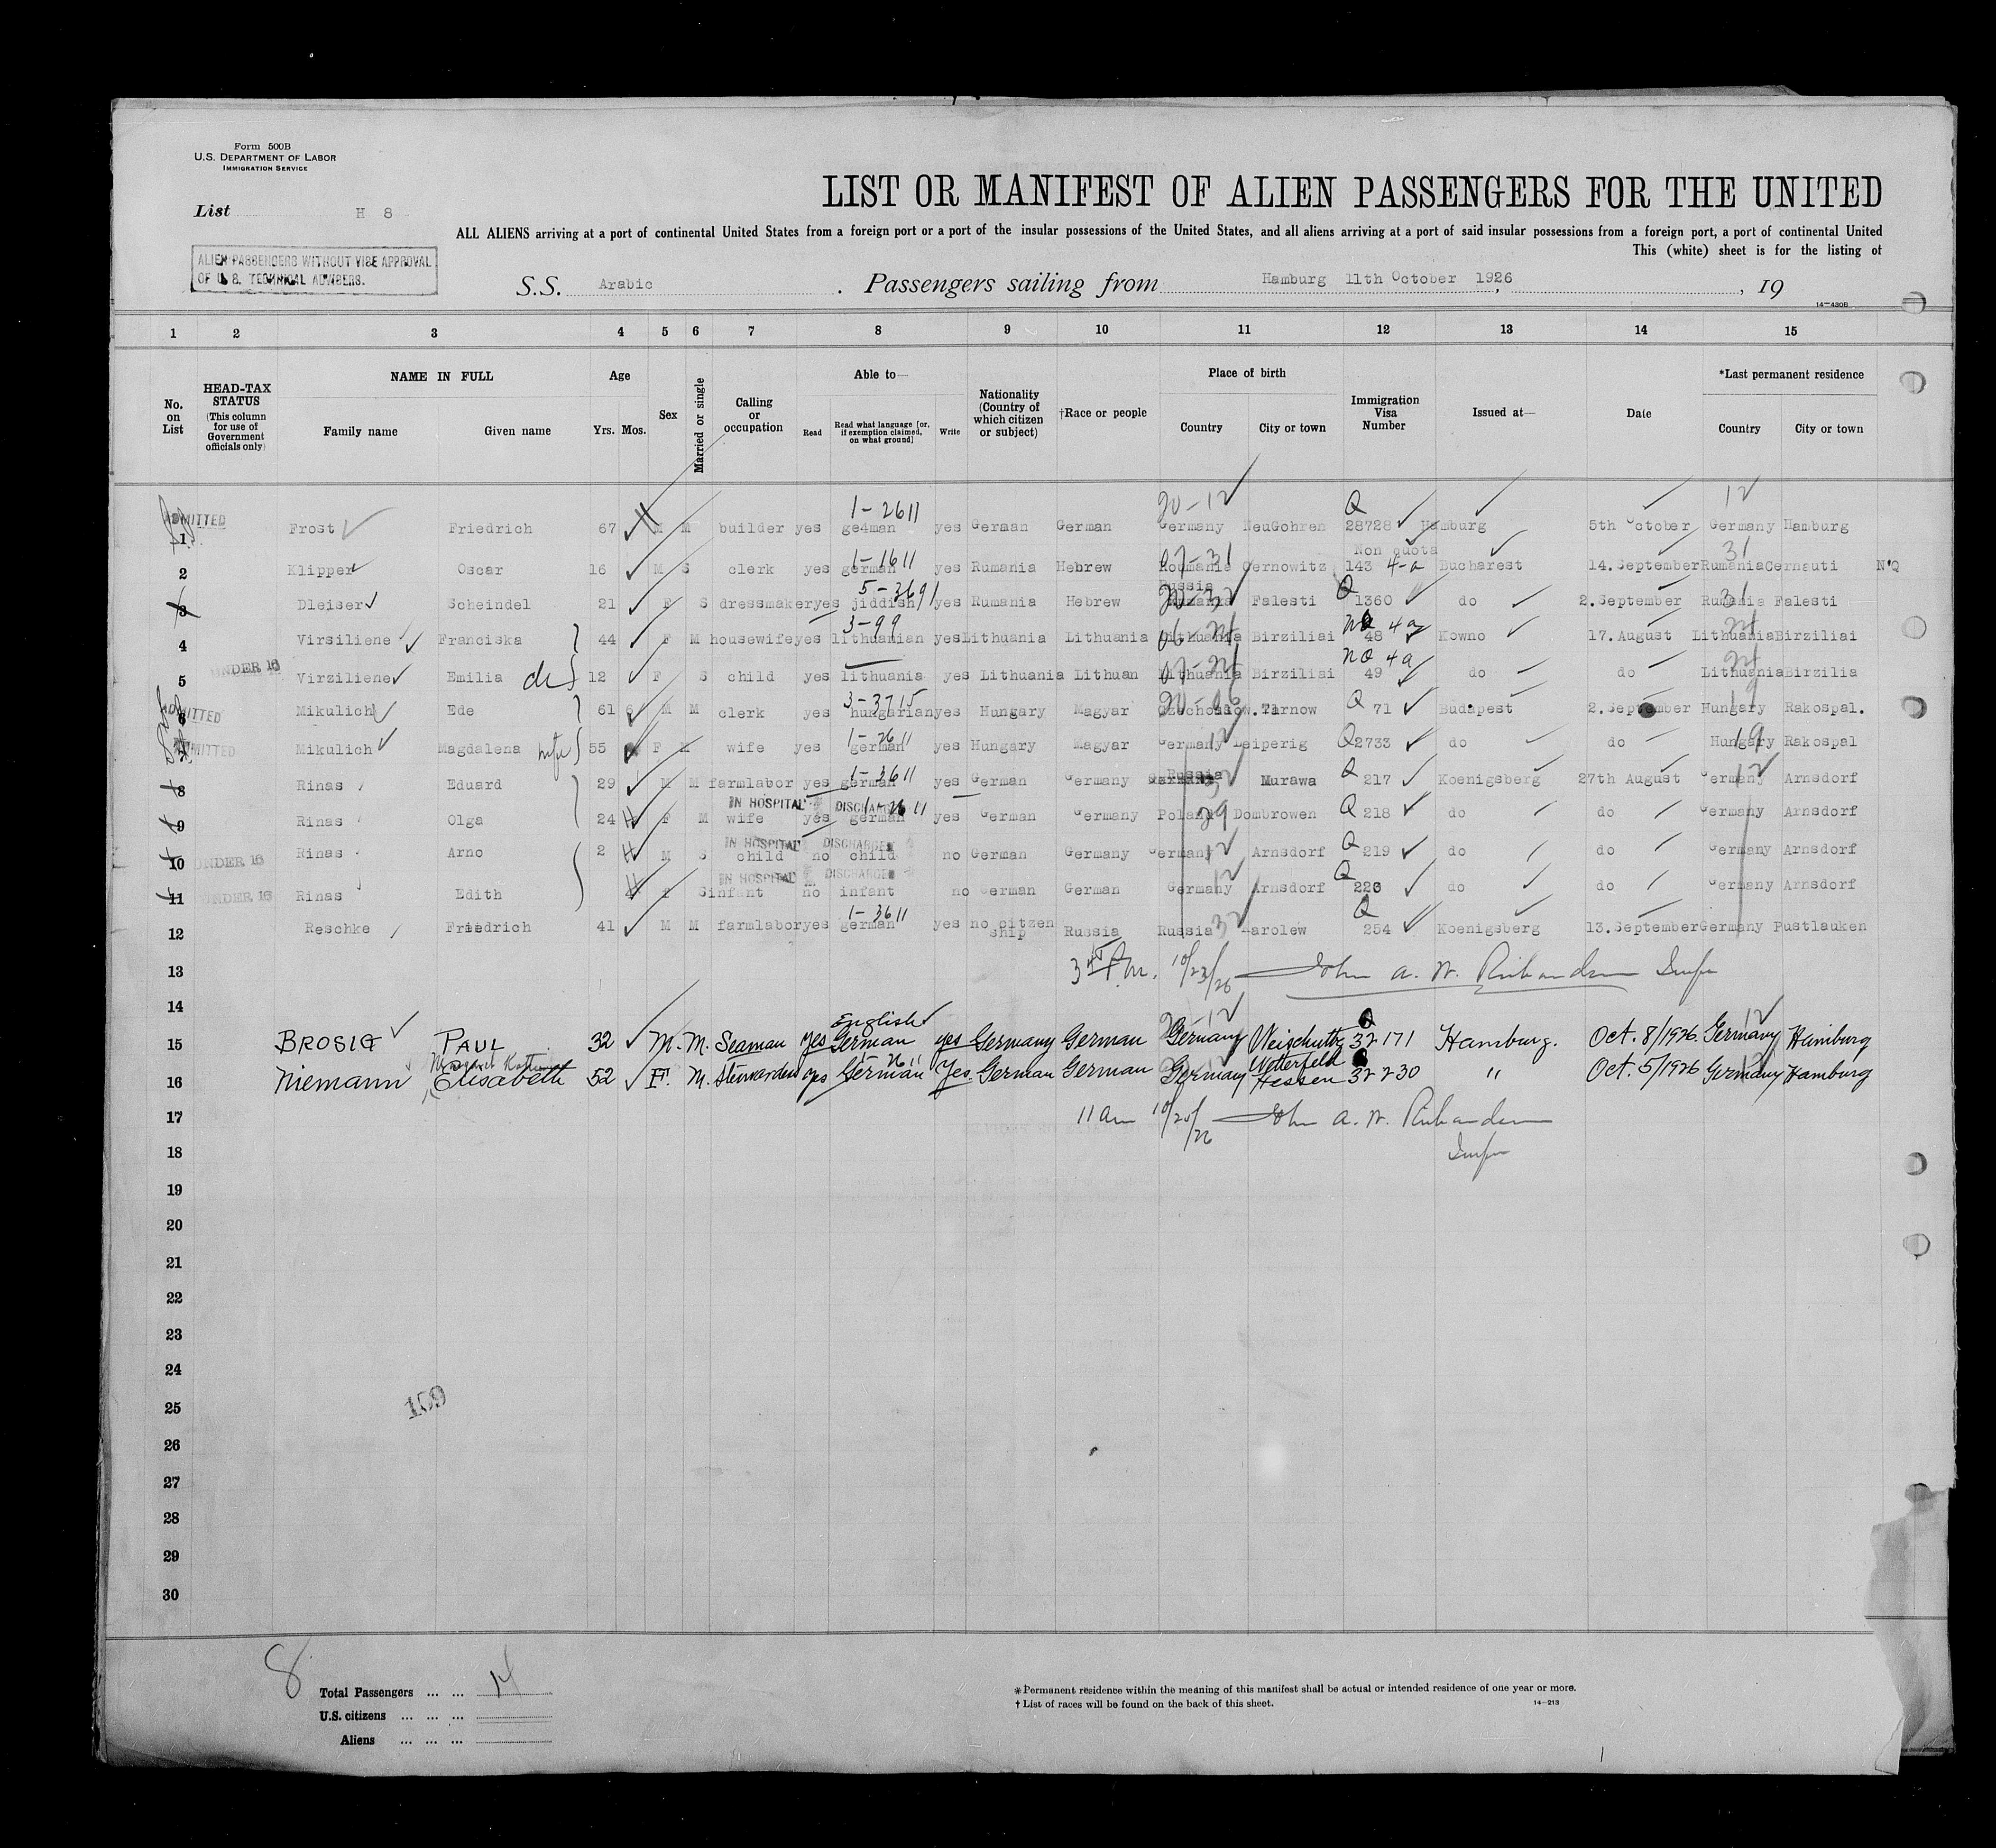 Form 500B
U.S. DEPARTMENT OF LABOR
IMMIGRATION SERVICE
List H 8
LIST OR MANIFEST OF ALIEN PASSENGERS FOR THE UNITED
ALL ALIENS arriving at a port of continental United States from a foreign port or a port of the insular possessions of the United States, and all aliens arriving at a port of said insular possessions from a foreign port, a port of continental United
This (white) sheet is for the listing of
ALIEN PASSENGERS WITHOUT VISE APPROVAL
OF U.S. TECHNICAL ADVISERS.
S.S. Arabic . Passengers sailing from Hamburg 11th October 1926 , 19
14—430B
1 2 3 4 5 6 7 8 9 10 11 12 13 14 15
No. on List
HEAD-TAX STATUS (This column for use of Government officials only)
NAME IN FULL
Family name Given name
Age
Yrs. Mos.
Sex
Married or single
Calling or occupation
Able to—
Read Read what language [or, if exemption claimed, on what ground] Write
Nationality (Country of which citizen or subject)
†Race or people
Place of birth
Country City or town
Immigration Visa Number
Issued at—
Date
*Last permanent residence
Country City or town
1-2611 20-12 Q 12
ADMITTED
1 Frost Friedrich 67 M M builder yes ge4man yes Geraan German Germany NeuGohren 28728 Hamburg 5th October Germany Hamburg
1-1611 07-31 Non quota 31
2 Klipper Oscar 16 M S clerk yes german yes Rumania Hebrew Roumania Cernowitz 143 4-a Bucharest 14.September Rumania Cernauti N'Q
5-3691 Russia Q 31
3 Dleiser Scheindel 21 F S dressmaker yes jiddish yes Rumania Hebrew Falesti 1360 do 2.September Rumania Falesti
3-99 NQ 4a
4 Virsiliene Franciska 44 F M housewife yes lithuanian yes Lithuania Lithuania Lithuania Birziliai 48 Kowno 17.August Lithuania Birziliai
UNDER 16 NQ 4a
5 Virziliene Emilia 12 F S child yes lithuania yes Lithuania Lithuan Lithuania Birziliai 49 do do Lithuania Birzilia
ADMITTED 3-3715 19
6 Mikulich Ede 61 6 M M clerk yes hungarian yes Hungary Magyar Czechoslow. Tarnow Q 71 Budapest 2.September Hungary Rakospal.
ADMITTED 1-2611 12 19
7 Mikulich Magdalena wife 55 F M wife yes german yes Hungary Magyar Germany Leiperig Q 2733 do do Hungary Rakospal
1-3611 Russia 32 12
8 Rinas Eduard 29 M M farmlabor yes german yes German Germany Murawa Q 217 Koenigsberg 27th August Germany Arnsdorf
IN HOSPITAL DISCHARGED 1-2611
9 Rinas Olga 24 F M wife yes german yes German Germany Poland 29 Dombrowen Q 218 do do Germany Arnsdorf
IN HOSPITAL DISCHARGED
10 UNDER 16 Rinas Arno 2 M S child no child no German Germany Germany 12 Arnsdorf Q 219 do do Germany Arnsdorf
IN HOSPITAL DISCHARGED 12 Q
11 UNDER 16 Rinas Edith F S infant no infant no German German Germany Arnsdorf 220 do do Germany Arnsdorf
1-3611 Q
12 Reschke Friedrich 41 M M farmlabor yes german yes no citzen ship Russia Russia 32 Karolew 254 Koenigsberg 13.September Germany Pustlauken
13 10/23/26 John A. W. Richardson Insp
14
English 12 Q 12
15 BROSIG PAUL 32 M. M. Seaman yes German yes Germany German Germany 32171 Hamburg. Oct. 8/1926 Germany Hamburg
Margaret 1-2611 Wetterfeld
16 Niemann Elisabeth 52 F. M. Stewardess yes German Yes. German German Germany Hessen 32230 " Oct. 5/1926 Germany Hamburg
17 11 am 10/25/26 John A. W. Richardson
18 Insp
19
20
21
22
23
24
25
109
26
27
28
29
30
8
Total Passengers ... ... 14
U.S. citizens ... ... ...
Aliens ... ... ...
* Permanent residence within the meaning of this manifest shall be actual or intended residence of one year or more.
† List of races will be found on the back of this sheet.
14—213